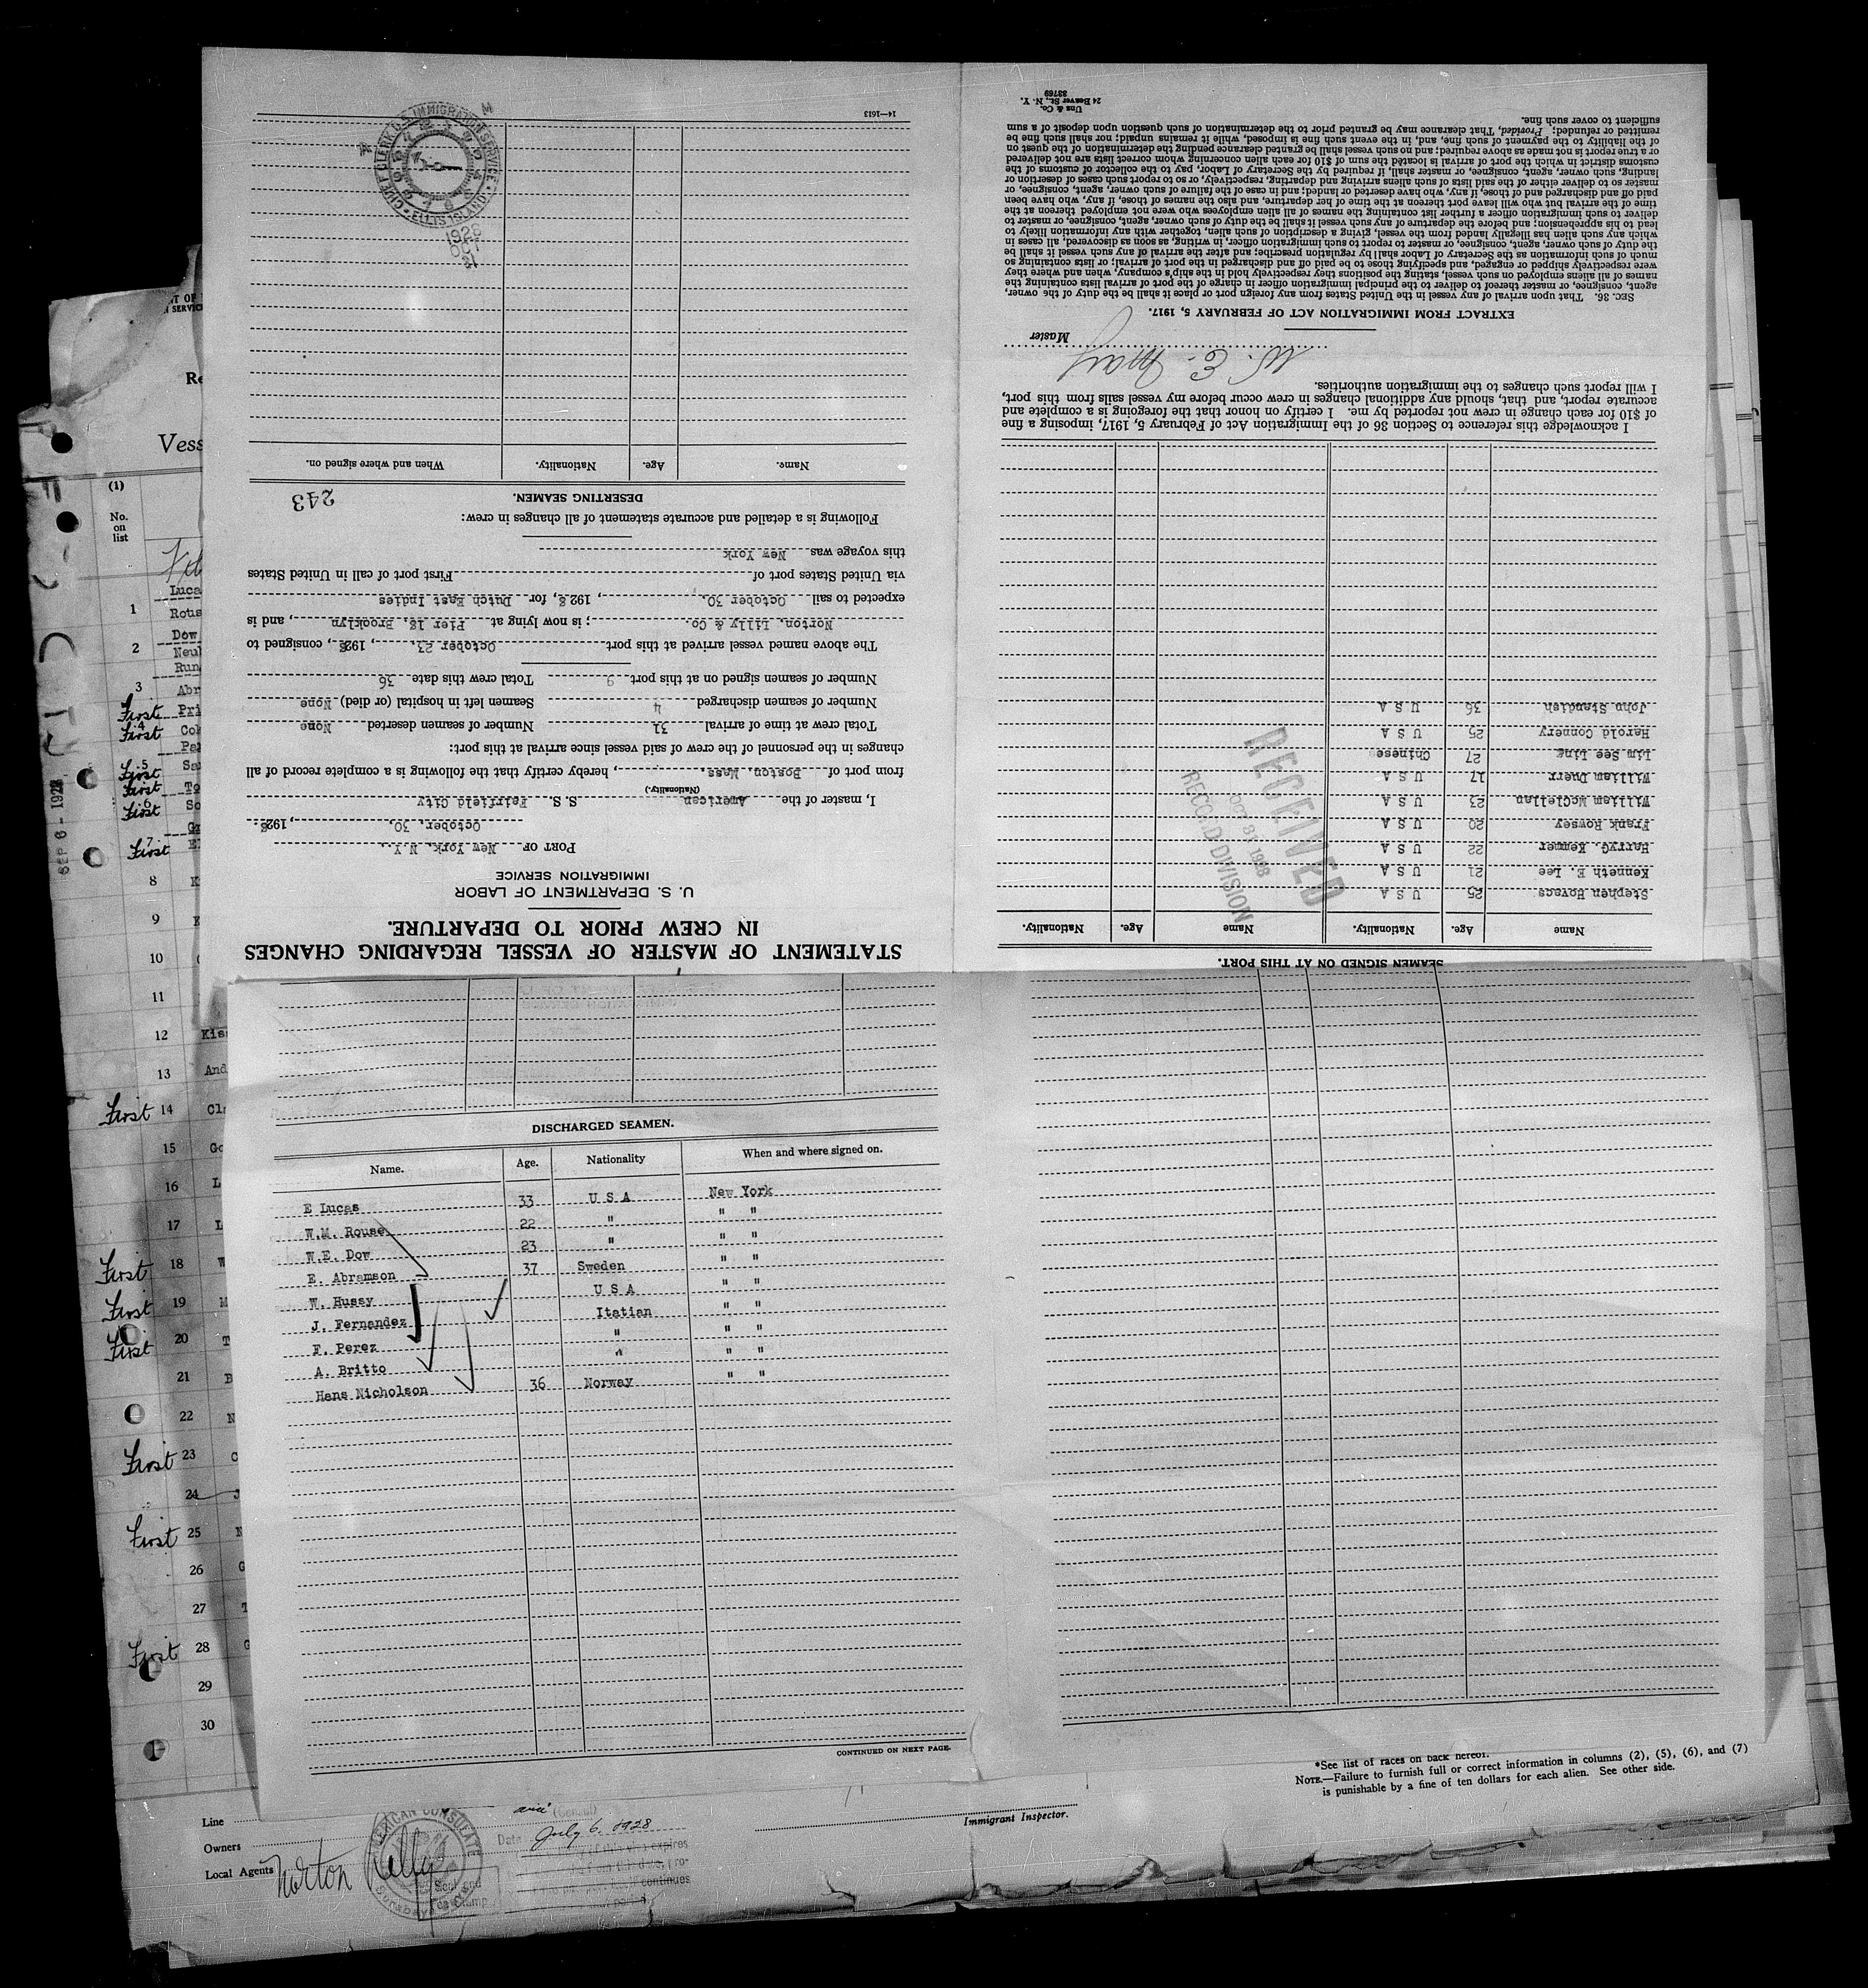 STATEMENT OF MASTER OF VESSEL REGARDING CHANGES
IN CREW PRIOR TO DEPARTURE.
U. S. DEPARTMENT OF LABOR
IMMIGRATION SERVICE
PORT OF New York, N.Y.,
October, 30, 1928.
I, master of the American S. S. Fairfield City
(Nationality.)
from port of Boston, Mass., hereby certify that the following is a complete record of all
changes in the personnel of the crew of said vessel since arrival at this port:
Total crew at time of arrival 31 Number of seamen deserted None
Number of seamen discharged 4 Seamen left in hospital (or died) None
Number of seamen signed on at this port 9 Total crew this date 36
The above named vessel arrived at this port October 23, 1928, consigned to
Norton, Lilly & Co. ; is now lying at Pier 18, Brooklyn, and is
expected to sail October 30, 1928, for Dutch East Indies
via United States port of First port of call in United States
this voyage was New York
Following is a detailed and accurate statement of all changes in crew:
DESERTING SEAMEN. 243
Name. Age. Nationality. When and where signed on.
14—1613
CHIEF CLERK U.S. IMMIGRATION SERVICE
ELLIS ISLAND
1928
OCT
31
SEAMEN SIGNED ON AT THIS PORT.
Name Age. Nationality. Name Age. Nationality.
Stephen Hovacs 25 U S A
Kenneth E. Lee 21 U S A
HarryG. Kemner 22 U S A
Frank Rowsey 20 U S A
William McClellan 23 U S A
William Duerr 17 U S A
Lim See Ling 27 Chinese
Harold Connery 25 U S A
John Standish 36 U S A
RECEIVED
OCT 31 1928
RECO.D DIVISION
I acknowledge this reference to Section 36 of the Immigration Act of February 5, 1917, imposing a fine
of $10 for each change in crew not reported by me. I certify on honor that the foregoing is a complete and
accurate report, and that, should any additional changes in crew occur before my vessel sails from this port,
I will report such changes to the immigration authorities.
W. E. May
Master
EXTRACT FROM IMMIGRATION ACT OF FEBRUARY 5, 1917.
SEC. 36. That upon arrival of any vessel in the United States from any foreign port or place it shall be the duty of the owner,
agent, consignee, or master thereof to deliver to the principal immigration officer in charge of the port of arrival lists containing the
names of all aliens employed on such vessel, stating the positions they respectively hold in the ship's company, when and where they
were respectively shipped or engaged, and specifying those to be paid off and discharged in the port of arrival; or lists containing so
much of such information as the Secretary of Labor shall by regulation prescribe; and after the arrival of any such vessel it shall be
the duty of such owner, agent, consignee, or master to report to such immigration officer, in writing, as soon as discovered, all cases in
which any such alien has illegally landed from the vessel, giving a description of such alien, together with any information likely to
lead to his apprehension; and before the departure of any such vessel it shall be the duty of such owner, agent, consignee, or master to
deliver to such immigration officer a further list containing the names of all alien employees who were not employed thereon at the
time of the arrival but who will leave port thereon at the time of her departure, and also the names of those, if any, who have been
paid off and discharged and of those, if any, who have deserted or landed; and in case of the failure of such owner, agent, consignee, or
master so to deliver either of the said lists of such aliens arriving and departing, respectively, or so to report such cases of desertion or
landing, such owner, agent, consignee, or master, shall, if required by the Secretary of Labor, pay to the collector of customs of the
customs district in which the port of arrival is located the sum of $10 for each alien concerning whom correct lists are not delivered
or a true report is not made as above required; and no such vessel shall be granted clearance pending the determination of the quest on
of the liability to the payment of such fine, and, in the event such fine is imposed, while it remains unpaid; nor shall such fine be
remitted or refunded: Provided, That clearance may be granted prior to the determination of such question upon deposit of a sum
sufficient to cover such fine.
Unz & Co.
24 Beaver St., N. Y.
33769
DISCHARGED SEAMEN.
Name. Age. Nationality When and where signed on.
E Lucas 33 U S A New York
W.M. Rouse 22 " " "
W.E. Dow 23 " " "
E. Abramson 37 Sweden " "
W. Hussy U S A " "
J. Fernandez Itatian " "
F. Perez " " "
A. Britto " " "
Hans Nicholson 36 Norway " "
CONTINUED ON NEXT PAGE.
Vess
(1)
No.
on
list
Luca
1 Rous
Dow
2 Neul
Run
3 Abr
First Pri
First 4 Col
Pa
First 5 Sa
First To
First 6 So
Gr
First 7 El
8 K
9 K
10
11
12 Kis
13 And
First 14 Cla
15 Go
16 L
17 L
First 18 W
First 19 M
First 20 T
21 B
22 N
First 23 C
24 J
First 25 N
26 G
27 T
First 28 G
29
30
SEP 6 - 1928
*See list of races on back hereof.
NOTE.—Failure to furnish full or correct information in columns (2), (5), (6), and (7)
is punishable by a fine of ten dollars for each alien. See other side.
Immigrant Inspector.
Line
Owners
Local Agents Norton Lilly
AMERICAN CONSULATE
Date July 6, 1928